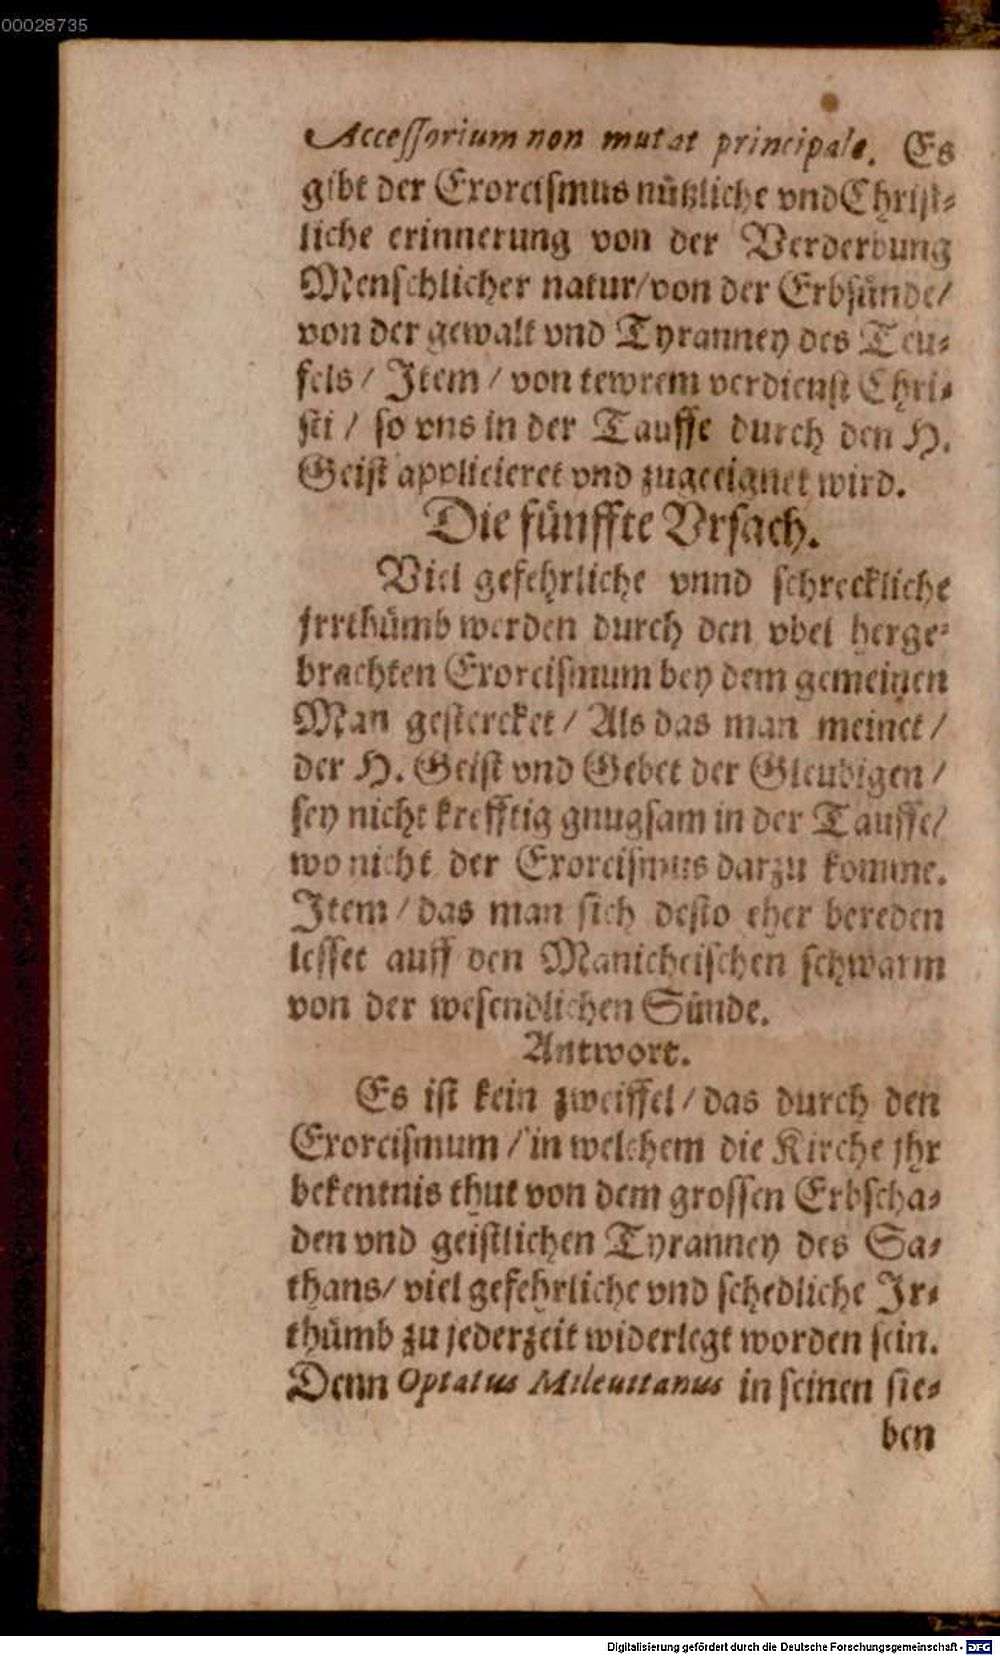 00028735
Accessorium non mutat principale. Es
gibt der Exorcismus nützliche vnd Christ-
liche erinnerung von der Verderbung
Menschlicher natur/ von der Erbsünde/
von der gewalt vnd Tyranney des Teu-
fels / Item / von tewrem verdienst Chri-
sti / so vns in der Tauffe durch den H.
Geist applicieret vnd zugeeignet wird.
Die fünffte Vrsach.
Viel gefehrliche vnnd schreckliche
jrrthümb werden durch den vbel herge-
brachten Exorcismum bey dem gemeinen
Man gestercket / Als das man meinet /
der H. Geist vnd Gebet der Gleubigen /
sey nicht krefftig gnugsam in der Tauffe/
wo nicht der Exorcismus darzu komme.
Item / das man sich desto eher bereden
lesset auff den Manicheischen schwarm
von der wesendlichen Sünde.
Antwort.
Es ist kein zweiffel / das durch den
Exorcismum / in welchem die Kirche jhr
bekentnis thut von dem grossen Erbscha-
den vnd geistlichen Tyranney des Sa-
thans/ viel gefehrliche vnd schedliche Ir-
thümb zu jederzeit widerlegt worden sein.
Denn Optatus Mileuitanus in seinen sie-
ben
Digitalisierung gefördert durch die Deutsche Forschungsgemeinschaft - DFG